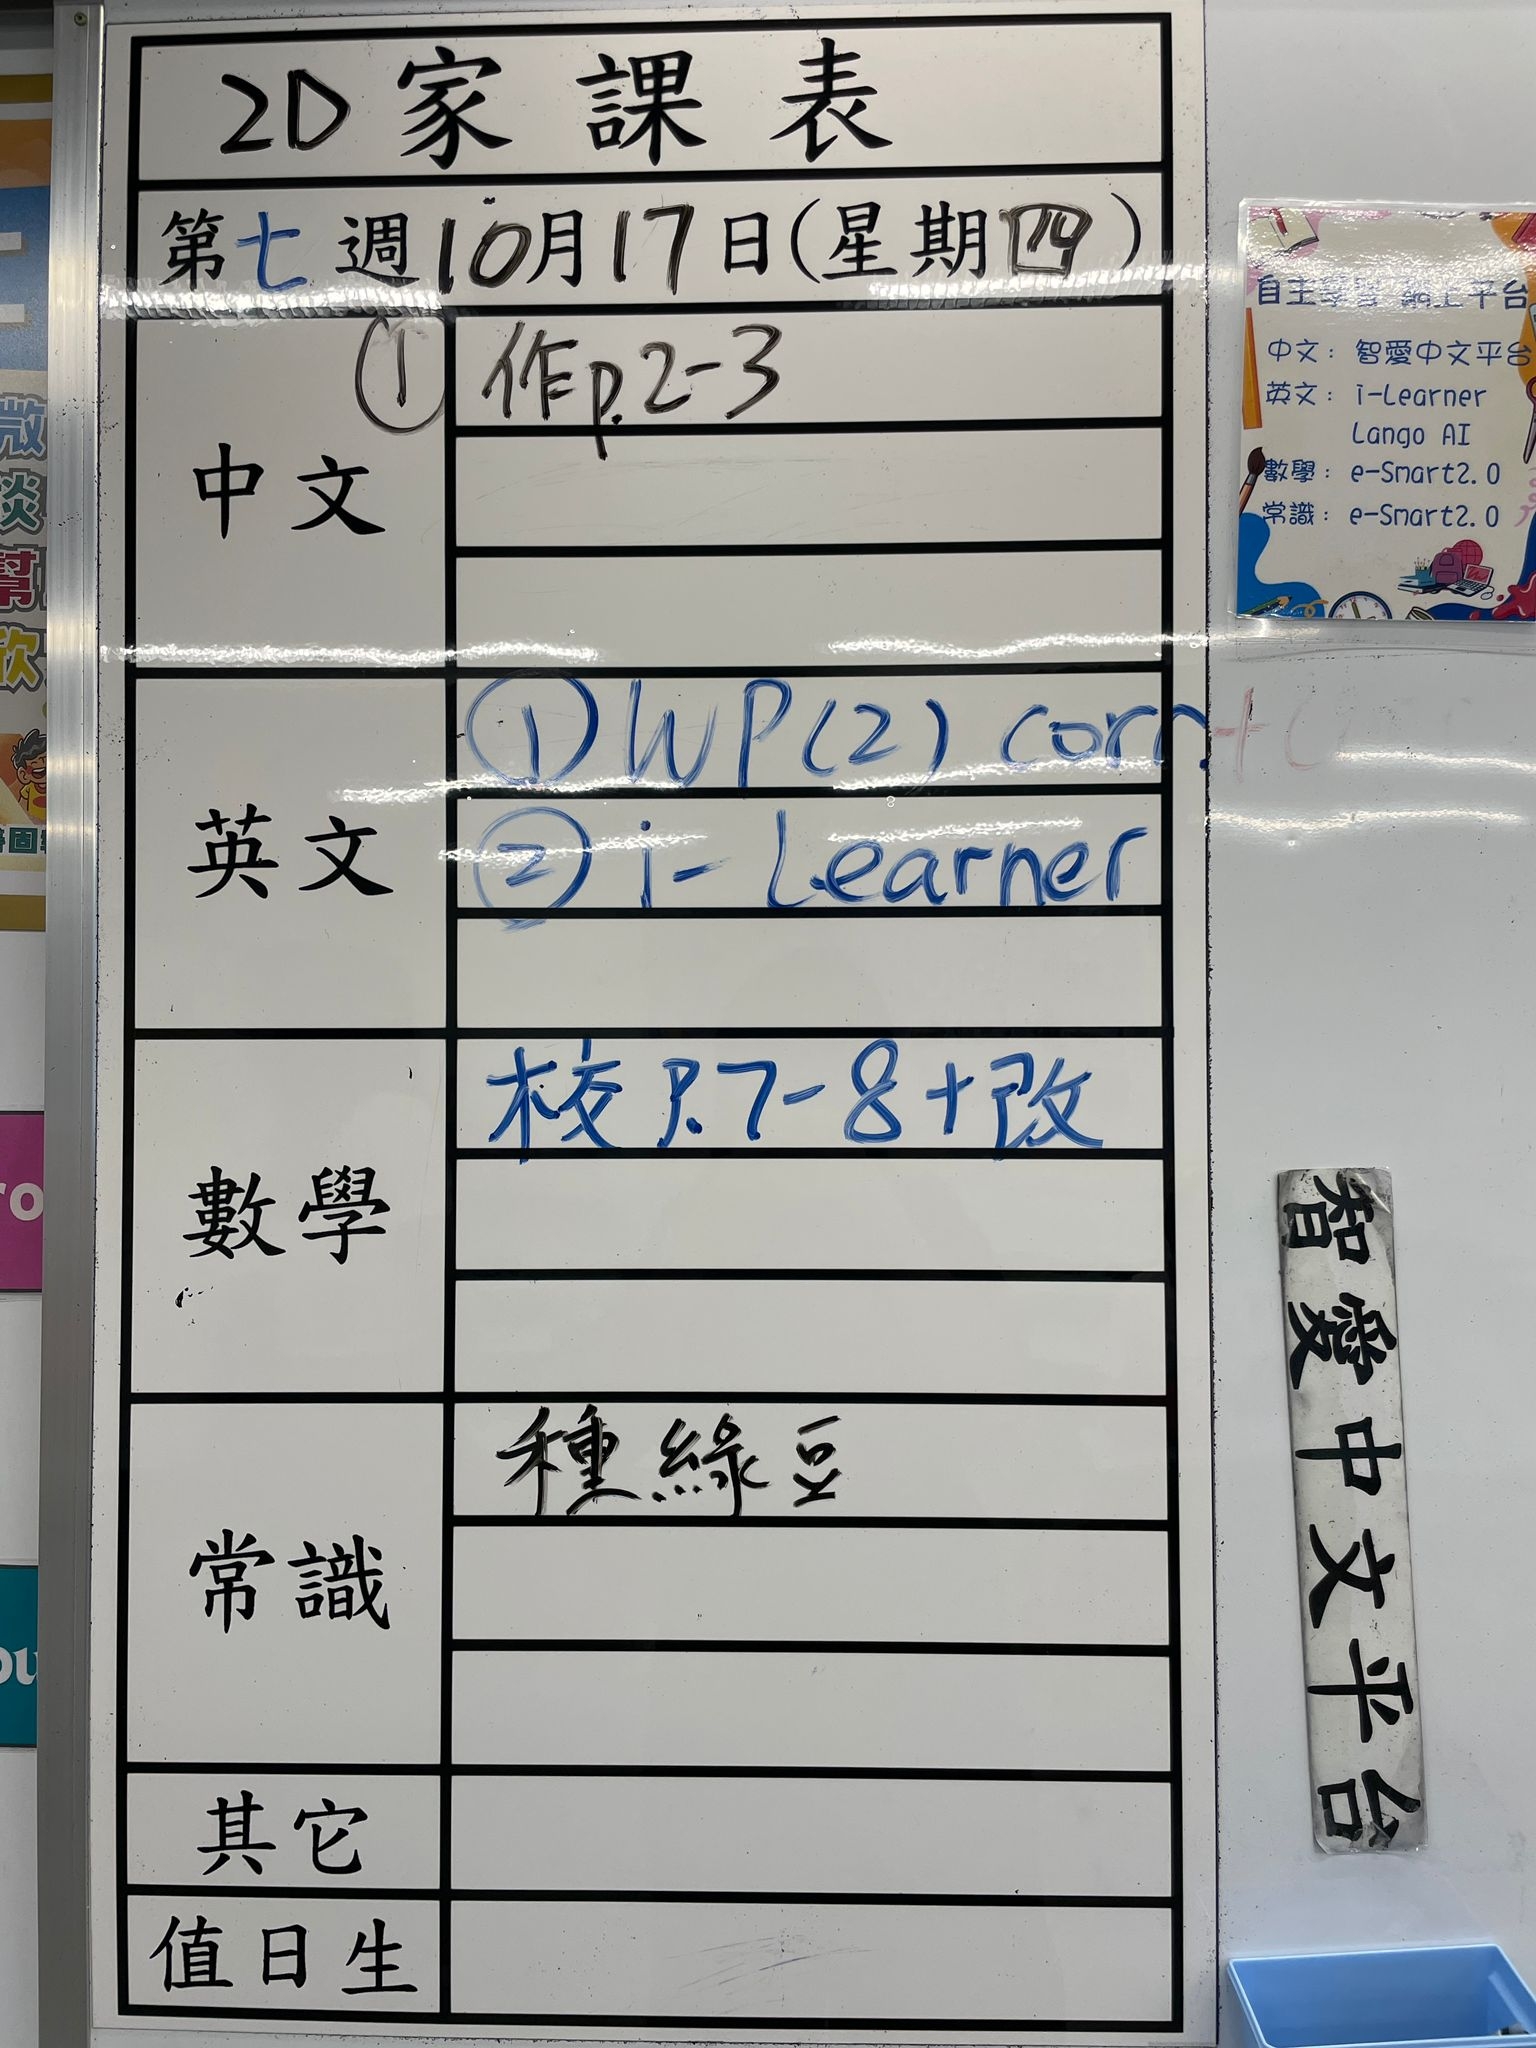 2D 家課表
第七週10月17日(星期四)
中文
① 作p.2-3
英文
① WP(2) corr
② i-Learner
數學
校 P.7-8+改
常識
種綠豆
其它
值日生
自主學習 網上平台
中文：智愛中文平台
英文：i-Learner
Lango AI
數學：e-Smart2.0
常識：e-Smart2.0
智愛中文平台